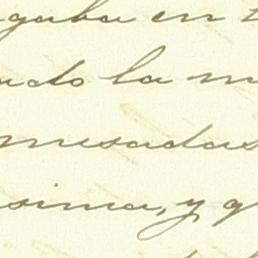 gaba en
ado la m
mesadas
sima, y q